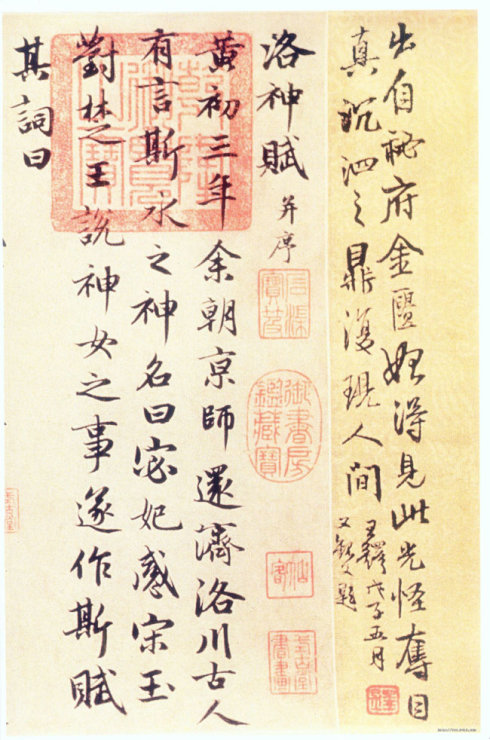 出自秘府金匱始得見此光怪奪目
真沉泗之鼎復現人間
王鐸戊子五月
洛神賦 并序
御書房鑑藏寶
黄初三年余朝京師還濟洛川古人
有言斯水之神名曰宓妃感宋玉
對楚王說神女之事遂作斯賦
其詞曰